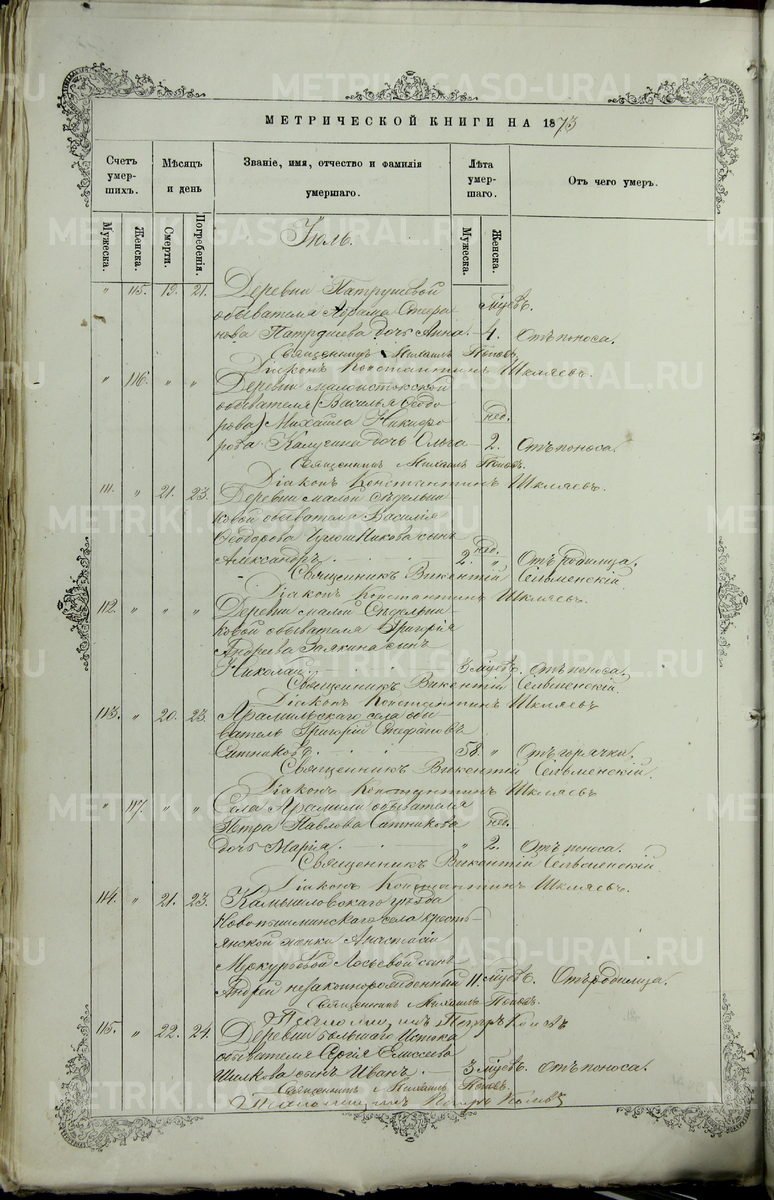 МЕТРИЧЕСКОЙ КНИГИ НА 1873
Счетъ умершихъ.
Мѣсяцъ и день
Званіе, имя, отчество и фамилія умершаго.
Лѣта умершаго.
Отъ чего умеръ.
Мужеска.
Женска.
Смерти.
Погребенія.
Мужеска.
Женска.
Іюль.
" 115. 19. 21. Деревни Патрушевой
обывателя Абрама Стефа- мѣсяцъ.
нова Патрушева дочь Анна. 4. Отъ поноса.
Священникъ Михаилъ Поповъ.
Діаконъ Константинъ Шкляевъ.
" 116. " " Деревни малоистокской
обывателя (Василья Ѳеодо-
рова) Михаила Никифо- нед.
рова Калугина дочь Ольга 2. Отъ поноса.
Священникъ Михаилъ Поповъ.
Діаконъ Константинъ Шкляевъ.
111. " 21. 23. Деревни малой Сѣдельни-
ковой обывателя Василія
Ѳеодорова сынъ нед.
Александръ 2. " Отъ родимца.
Священникъ Викентій Сельменскій.
Діаконъ Константинъ Шкляевъ.
112. " " " Деревни малой Сѣдельни-
ковой обывателя Григорія
Андреева сынъ
Николай. 3 мѣсяц. Отъ поноса.
Священникъ Викентій Сельменскій.
Діаконъ Константинъ Шкляевъ
113. " 20. 23. Арамильскаго села обы-
ватель Григорій Стефановъ
Ситниковъ. 58. " Отъ горячки.
Священникъ Викентій Сельменскій.
Діаконъ Константинъ Шкляевъ
" 117. " " Села Арамили обывателя
Петра Павлова Ситникова нед.
дочь Марія. " 2. Отъ поноса.
Священникъ Викентій Сельменскій
Діаконъ Константинъ Шкляевъ.
114. " 21. 23. Камышловскаго уѣзда
Новопышминскаго села кресть-
янской женки Анастасіи
Меркурьевой Лосьевой сынъ
Андрей незаконнорожденный 11. мѣсяц. Отъ родимца.
Священникъ Михаилъ Поповъ.
Псаломщикъ Петръ
115. " 22. 24. Деревни большаго Истока
обывателя Сергія Елисеева
Шилкова сынъ Иванъ. 3 мѣсяц. Отъ поноса.
Священникъ Михаилъ Поповъ.
Псаломщикъ Петръ
METRIKI.GASO-URAL.RU